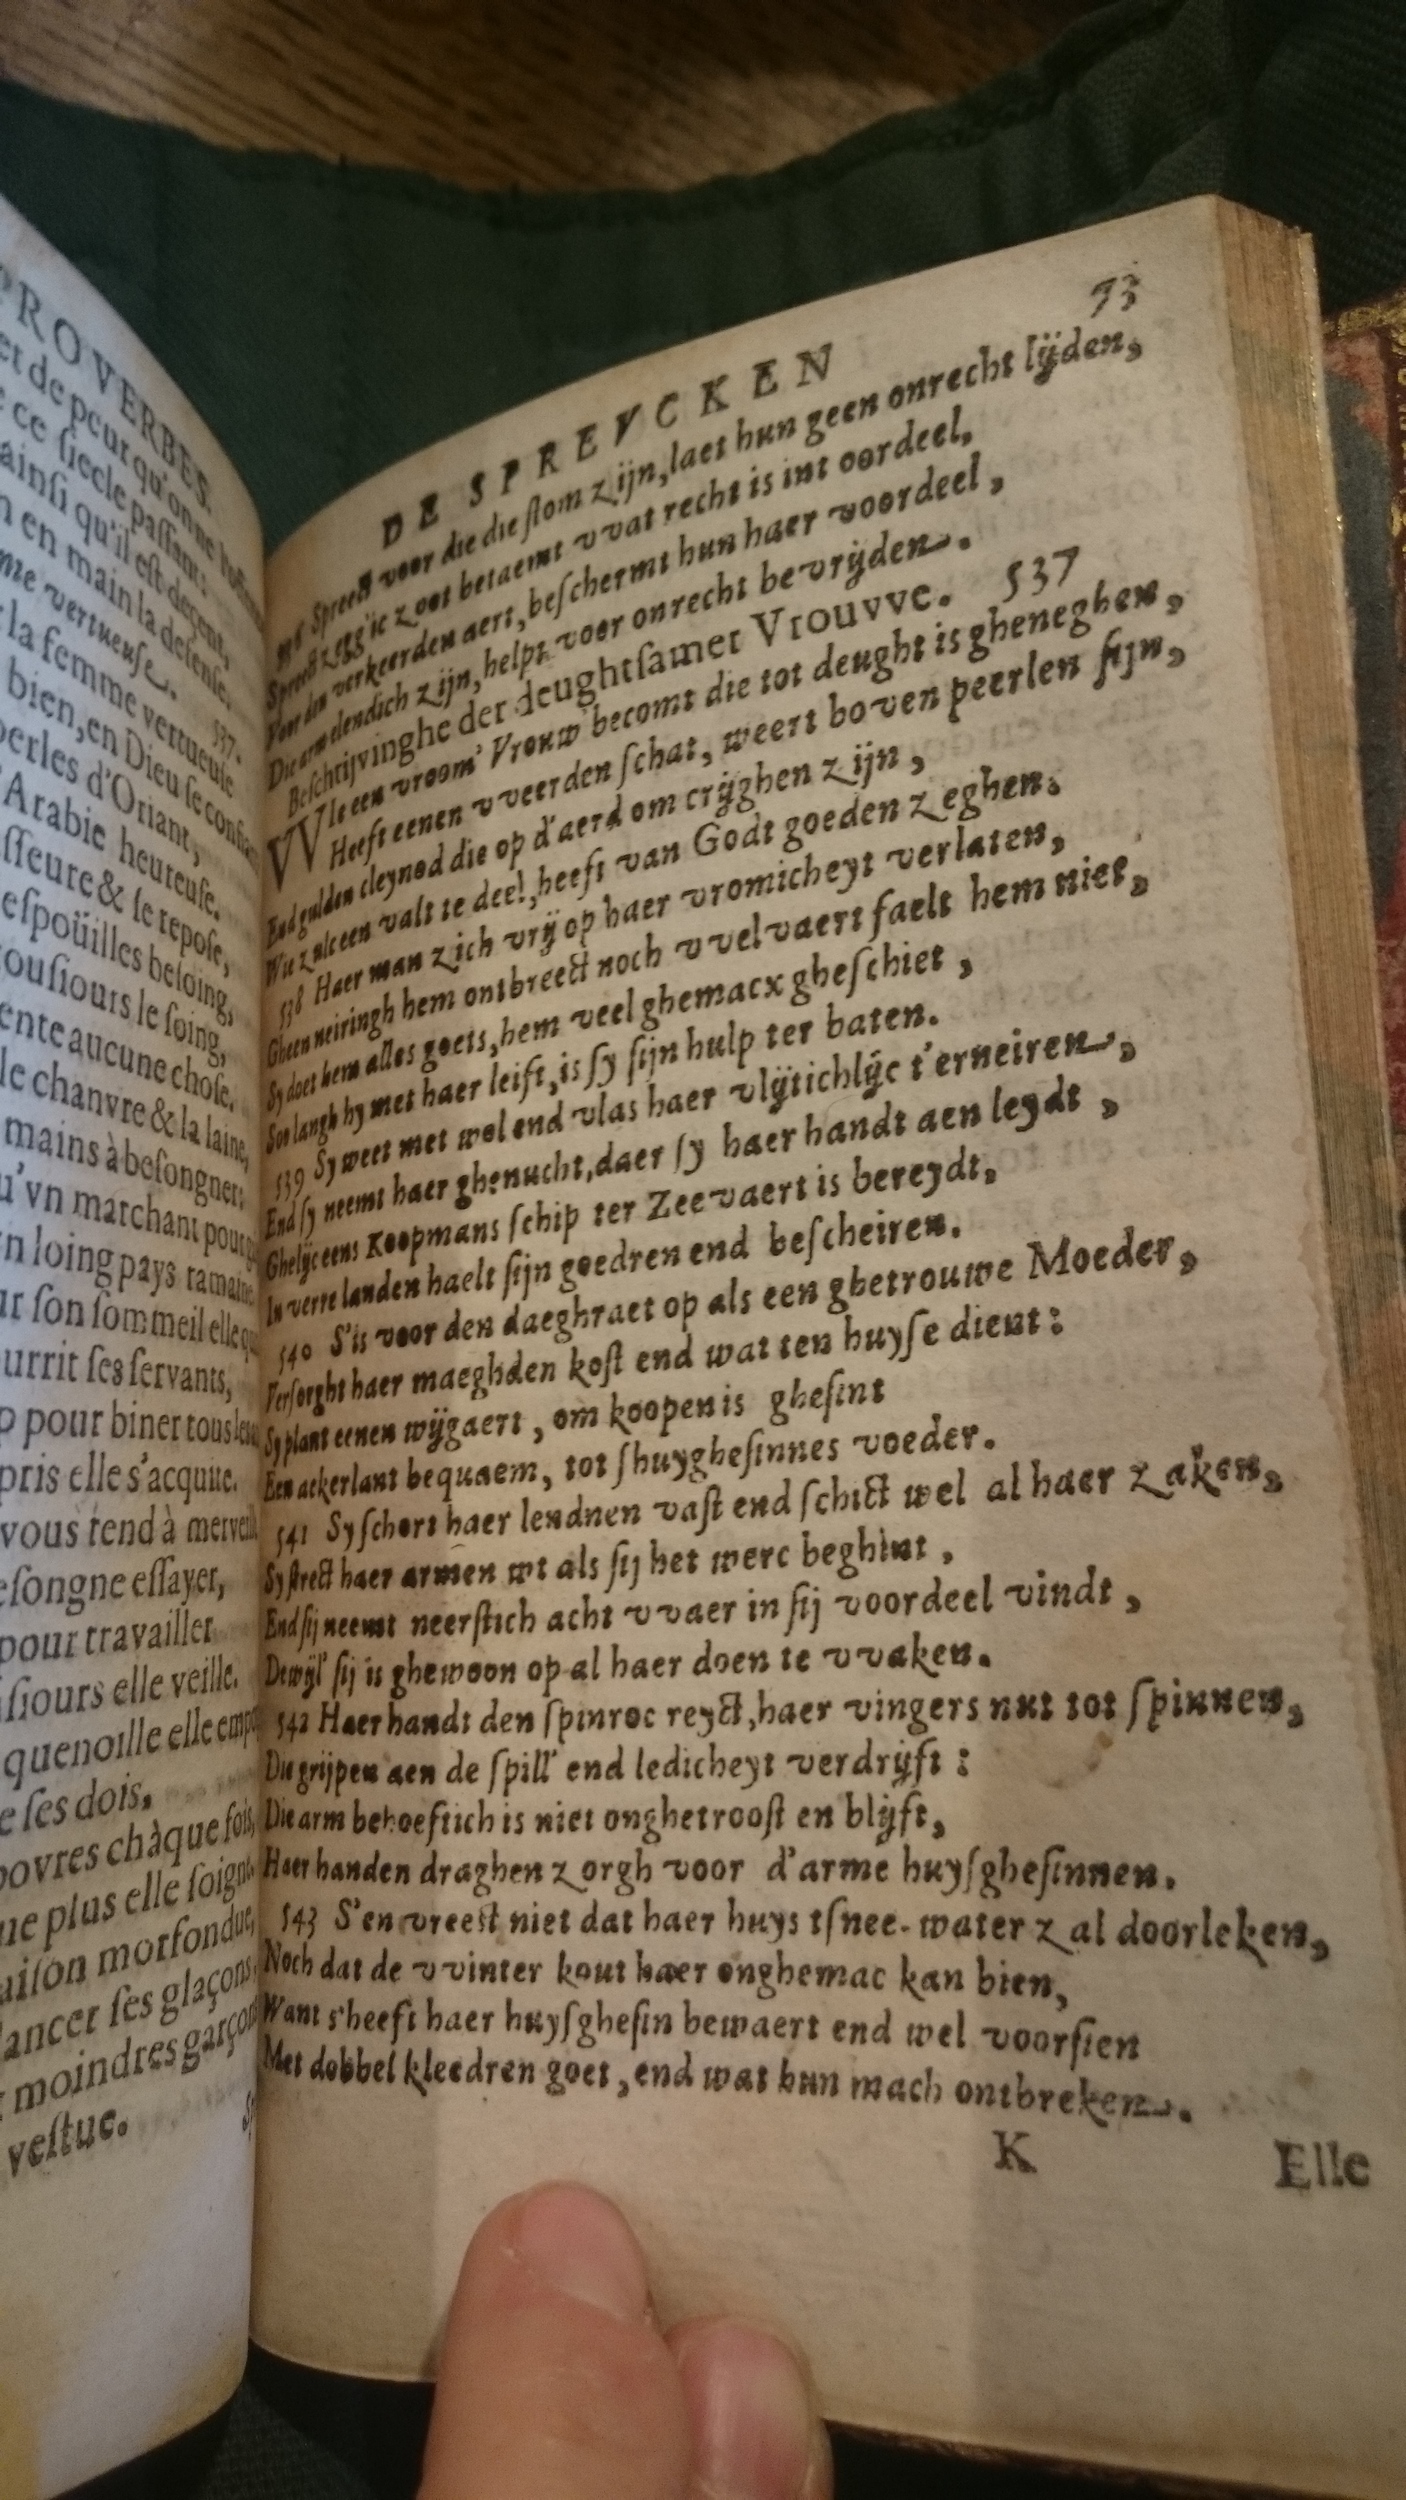 PROVERBES.
et de peur qu'on ne
ce siecle passant:
ainsi qu'il est decent,
en main la defense.
me vertueuse. 537.
la femme vertueuse
bien, en Dieu se
perles d'Oriant,
d'Arabie heureuse.
asseure & se repose,
espoüilles besoing,
tousiours le soing,
ente aucune chose.
le chanvre & la laine,
mains à besongner:
qu'vn marchant pour
en loing pays
ur son sommeil elle
ourrit ses servants,
pour biner tous
pris elle s'acquite.
vous rend à
besongne essayer,
pour travailler
siours elle veille.
quenoille elle
ses dois.
povres chàque fois,
ne plus elle soigne
aison morfondue,
lancer ses glaçons,
moindres garçons
vestue.
73
DE SPREVCKEN
Spreect voor die die stom zijn, laet hun geen onrecht lijden,
Spreect zegg'ic zoot betaemt vvat recht is int oordeel,
Voor den verkeerden aert, beschermt hun haer voordeel,
Die arm elendich zijn, helpt voor onrecht bevrijden.
Beschrijvinghe der deughtsamer Vrouvve. 537
WIe een vroom' Vrouw becomt die tot deught is gheneghen,
Heeft eenen vveerden schat, weert boven peerlen sijn,
End gulden cleynod die op d'aerd om crijghen zijn,
Wie zulc een valt te deel, heeft van Godt goeden zeghen.
538 Haer man zich vrij op haer vromicheyt verlaten,
Gheen neiringh hem ontbreect noch vvelvaert faelt hem niet,
Sy doet hem alles goets, hem veel ghemacx gheschiet,
Soo langh hy met haer leift, is sy sijn hulp ter baten.
539 Sy weet met wol end vlas haer vlijtichlijc t'erneiren,
End sy neemt haer ghenucht, daer sy haer handt aen leydt,
Ghelijc eens Koopmans schip ter Zeevaert is bereydt,
In verre landen haelt sijn goedren end bescheiren.
540 S'is voor den daeghraet op als een ghetrouwe Moeder,
Versorght haer maeghden kost end wat ten huyse dient:
Sy plant eenen wijgaert, om koopen is ghesint
Een ackerlant bequaem, tot shuyghesinnes voeder.
541 Sy schort haer lendnen vast end schict wel al haer zaken,
Sy strect haer armen wt als sij het werc beghint,
End sij neemt neerstich acht vvaer in sij voordeel vindt,
Dewijl' sij is ghewoon op al haer doen te vvaken.
542 Haer handt den spinroc reyct, haer vingers nut tot spinnen,
Die grijpen aen de spill' end ledicheyt verdrijft:
Die arm behoeftich is niet onghetroost en blijft,
Haer handen draghen zorgh voor d'arme huysghesinnen.
543 S'en vreest niet dat haer huys tsnee-water zal doorleken,
Noch dat de vvinter kout haer onghemac kan bien,
Want s'heeft haer huysghesin bewaert end wel voorsien
Met dobbel kleedren goet, end wat hun mach ontbreken.
K Elle